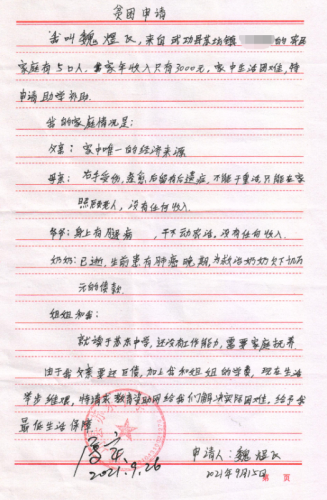 贫困申请
我叫魏煜 ，来自武功县苏坊镇 的 
家庭有5口人，全家年收入只有3000元，家中生活困难，特
申请助学补助.
我的家庭情况是：
父亲：家中唯一的经济来源
母亲：右手受伤，意愈后留有后遗症，不能干重活，只能在家
照顾老人，没有任何收入.
爷爷：身上有腿病 ，干不动农活，没有任何收入.
奶奶：已逝，生前患有肺癌晚期，为救治奶奶欠下 万
元的借款
姐姐和我：
就读于苏东中学，还没有工作能力，需要家庭抚养
由于我父亲要还巨债，加上我和姐姐的学费，现在生活
举步维艰，特请求教育资助网给我们解决实际困难，给予我
最低生活保障.
2021.9.26
申请人：魏煜
2021年9月15日
第 页